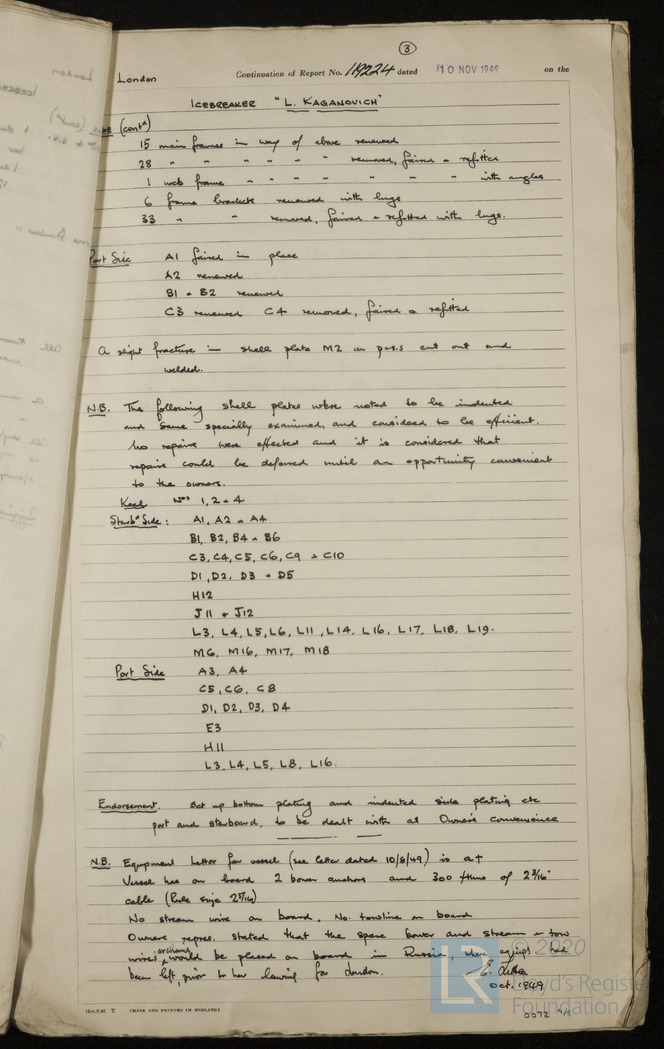 3
London Continuation of Report No. 119224 dated 10 NOV 1949 on the
ICEBREAKER "L. KAGANOVICH"
(contd)
15 main frames in way of above renewed
28 " " " " " " removed, faired & refitted
1 web frame " " " " " " " with angles
6 frame brackets renewed with lugs
33 " " removed, faired & refitted with lugs.
Port Side A1 faired in place
A2 renewed
B1 & B2 renewed
C3 renewed C4 removed, faired & refitted
A slight fracture in shell plate M2 on p.s.s cut out and
welded.
N.B. The following shell plates were noted to be indented
and same specially examined, and considered to be efficient.
No repairs were effected and it is considered that
repairs could be deferred until an opportunity convenient
to the owners.
Keel Nos 1, 2 & 4
Starbd Side: A1, A2 & A4
B1, B2, B4 & B6
C3, C4, C5, C6, C9 & C10
D1, D2, D3 & D5
H12
J11 & J12
L3, L4, L5, L6, L11, L14, L16, L17, L18, L19.
M6, M16, M17, M18
Port Side A3, A4
C5, C6, C8
D1, D2, D3, D4
E3
H11
L3, L4, L5, L8, L16.
Endorsement. Set up bottom plating and indented side plating etc
port and starboard, to be dealt with at Owner's convenience
N.B. Equipment Letter for vessel (see letter dated 10/8/49) is a†
Vessel has on board 2 bower anchors and 300 fthms of 2 3/16"
cable (Rule size 2 5/16)
No stream wire on board, No. towline on board
Owners repres. stated that the spare bower and stream & tow
anchors
wires would be placed on board in Russia, where had
been left, prior to her leaving for London.
Oct. 1949
0072 4/5
(MADE AND PRINTED IN ENGLAND)
LR
© 2020
Lloyd's Register
Foundation